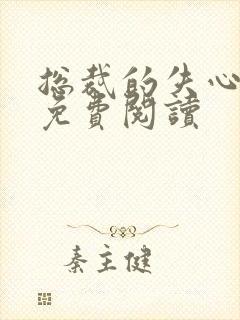 总裁的失心
免費閱讀
秦主健